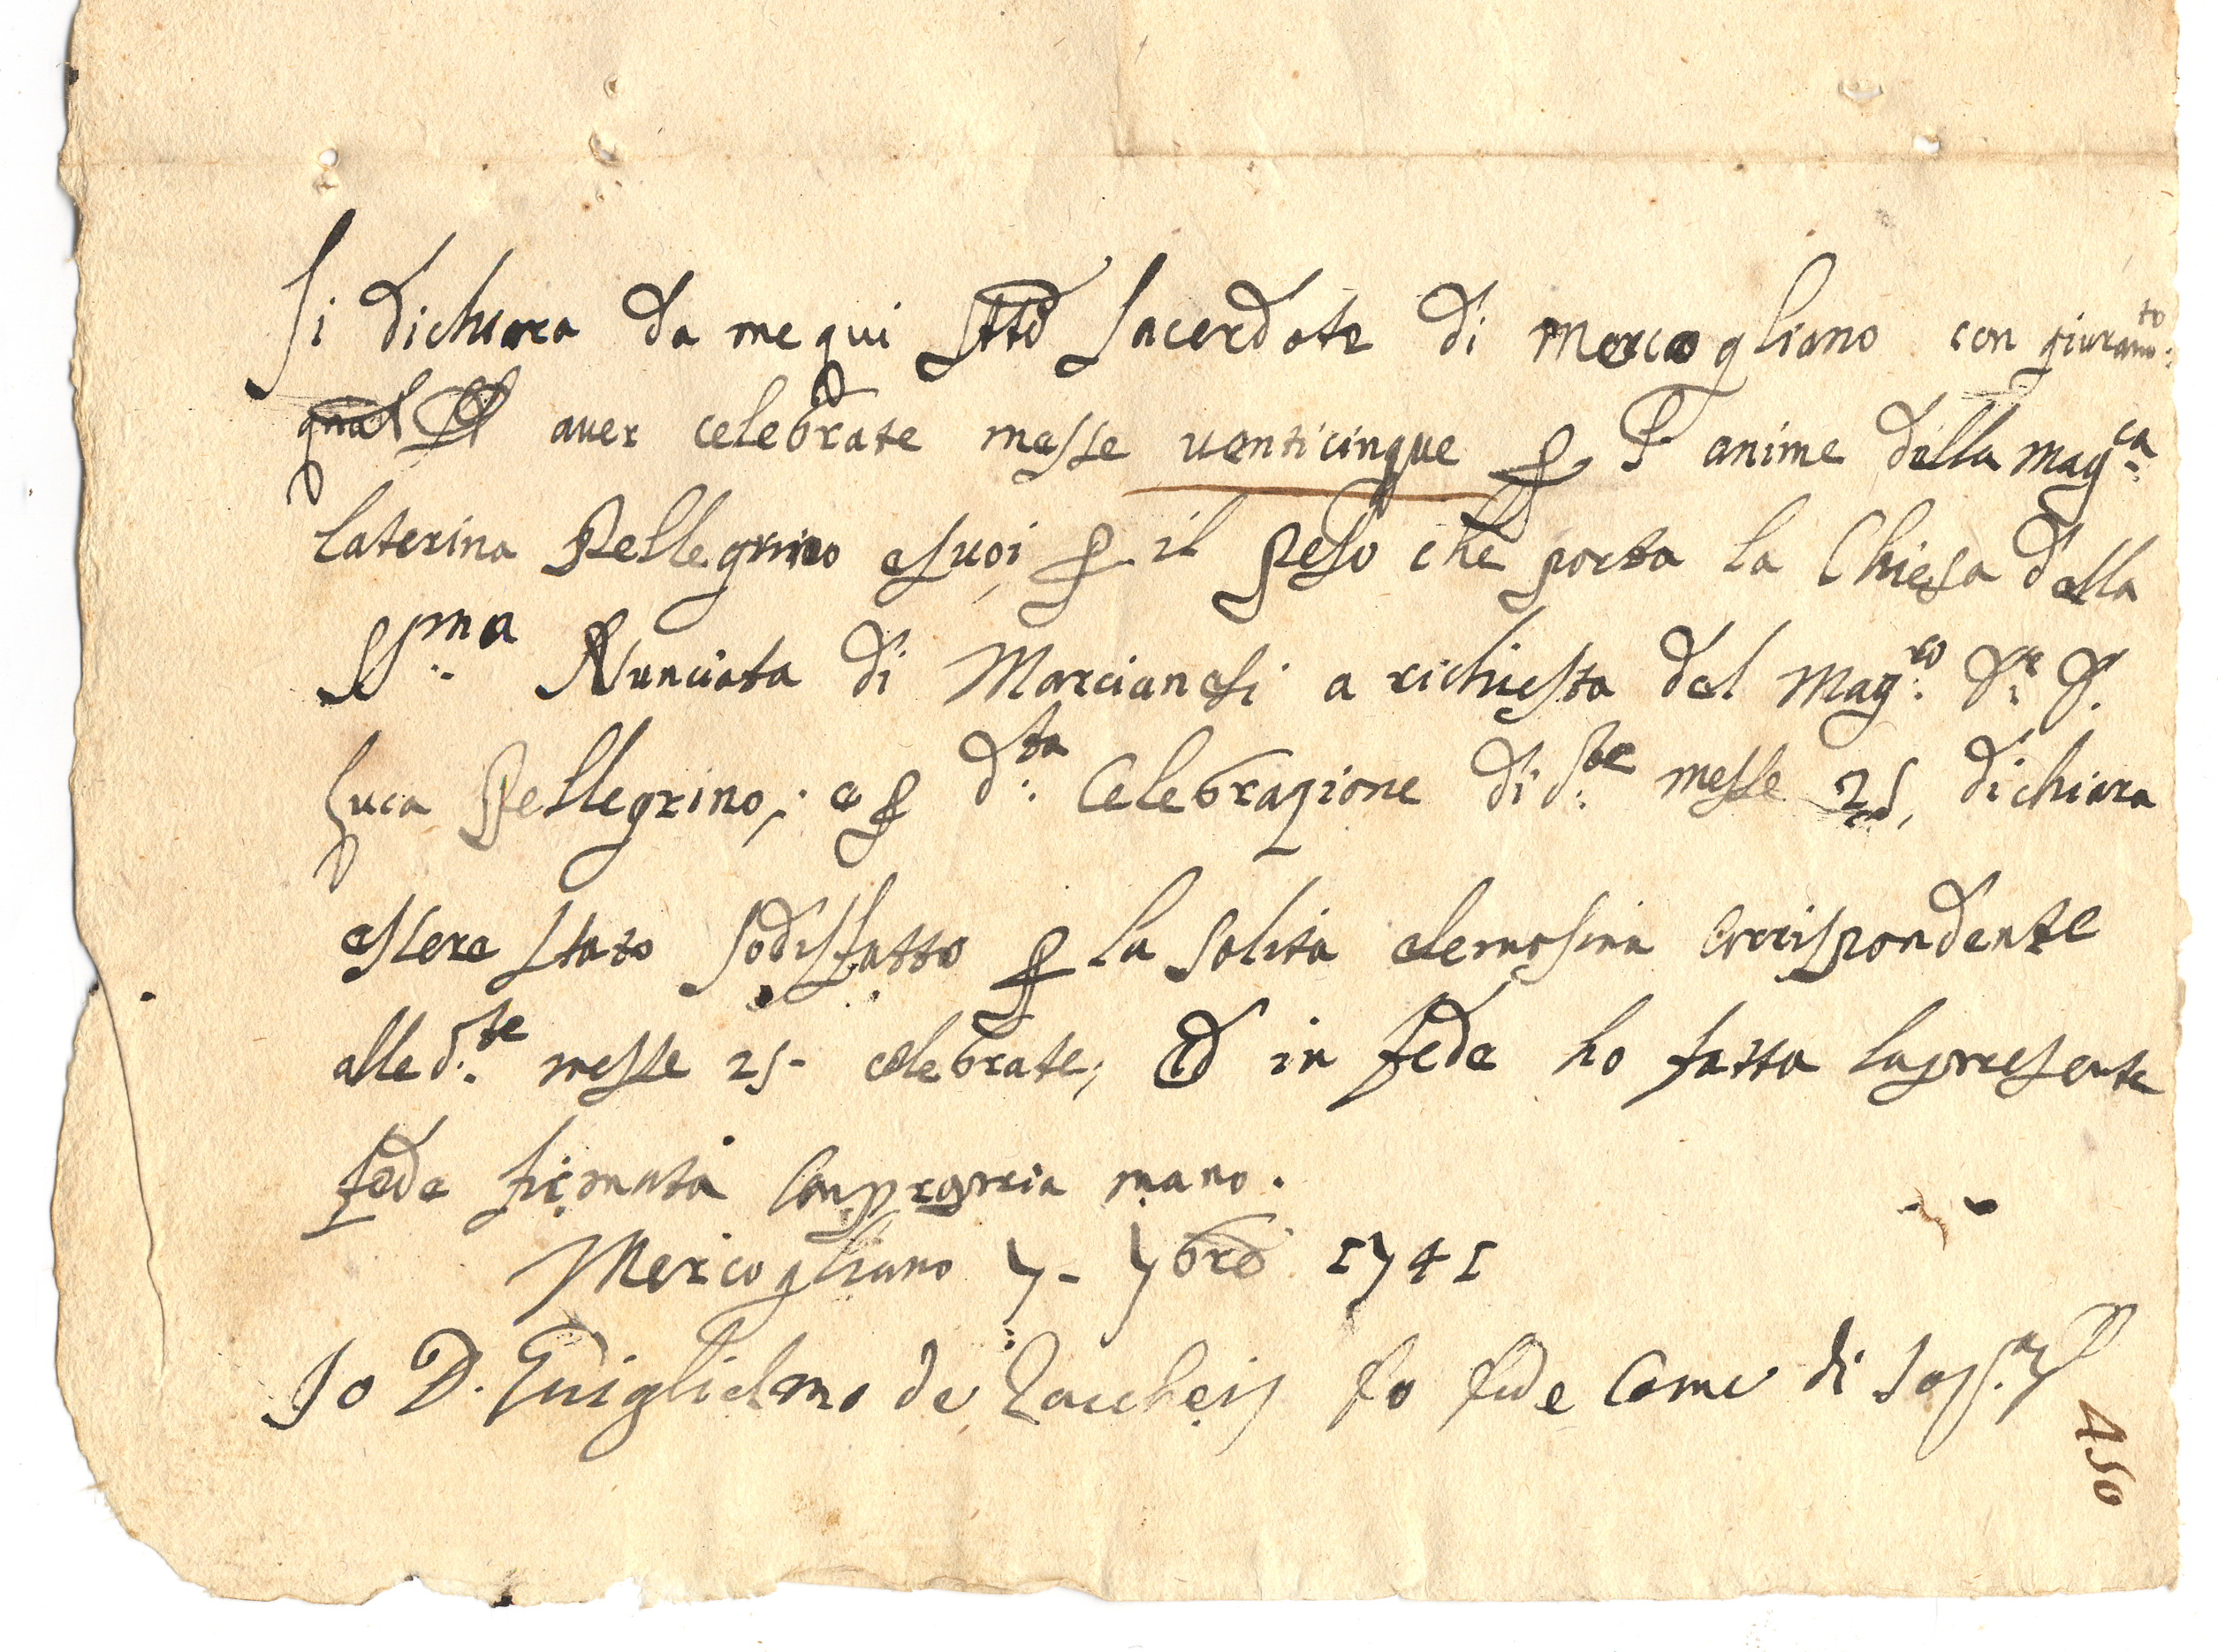 Si dichiara da me qui stto Sacerdote di Mercogliano con giuramto:
aver celebrate messe venticinque p l'anime della Magca:
Caterina Pellegrino e suoi, p il peso che porta la Chiesa della
SSma: Nunciata di Marcianesi a richiesta del Magco: Dr: D.
Luca Pellegrino; e p dta: Celebrazione di dte: messe 25, dichiara
essere stato sodisfatto p la solita elemosina corrispondente
alle dte: messe 25- celebrate; Ed in fede ho fatta la presente
fede firmata con propria mano.
Mercogliano 7- 7bre 1741
Io D. Guiglielmo de Zaccheis fo fede come di sopra
450